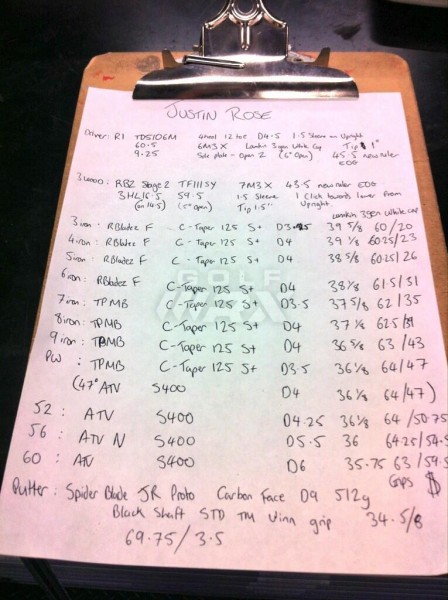 JUSTIN ROSE
Driver: R1 TDS106M 4heel 12 toe D4.5 1.5 Sleeve on Upright
60.5 6M3X Lamkin 3gen White Cap Tip 1"
9.25 Sole plate - Open 2 (6° Open) 45.5 new ruler EOG
3 wood: RBZ Stage 2 TF111SY 7M3X 43.5 new ruler EOG
3HL 16.5 59.5 1.5 Sleeve 1 Click towards lower from
(on 14.5) (5° Open) Tip 1.5" Upright
Lamkin 3gen White cap
3 iron: RBladez F C-Taper 125 S+ D3.25 39 5/8 60/20
4 iron: RBladez F C-Taper 125 S+ D4 39 1/8 60.25/23
5 iron: RBladez F C-Taper 125 S+ D4 38 5/8 60.25/26
6 iron: RBladez F C-Taper 125 S+ D4 38 1/8 61.5/31
7 iron: TPMB C-Taper 125 S+ D3.5 37 5/8 62/35
8 iron: TPMB C-Taper 125 S+ D4 37 1/4 62.5/39
9 iron: TPMB C-Taper 125 S+ D4 36 5/8 63/43
PW: TPMB C-Taper 125 S+ D3.5 36 1/8 64/47
(47° ATV S400 D4 36 1/8 64/47)
52: ATV S400 D4.25 36 1/8 64/50.75
56: ATV N S400 D5.5 36 64.25/54.5
60: ATV S400 D6 35.75 63/59.5
Grips $
Putter: Spider Blade JR Proto Carbon Face D9 512g
Black Shaft STD TM Winn grip 34.5/8
69.75/3.5
GOLF
WRX